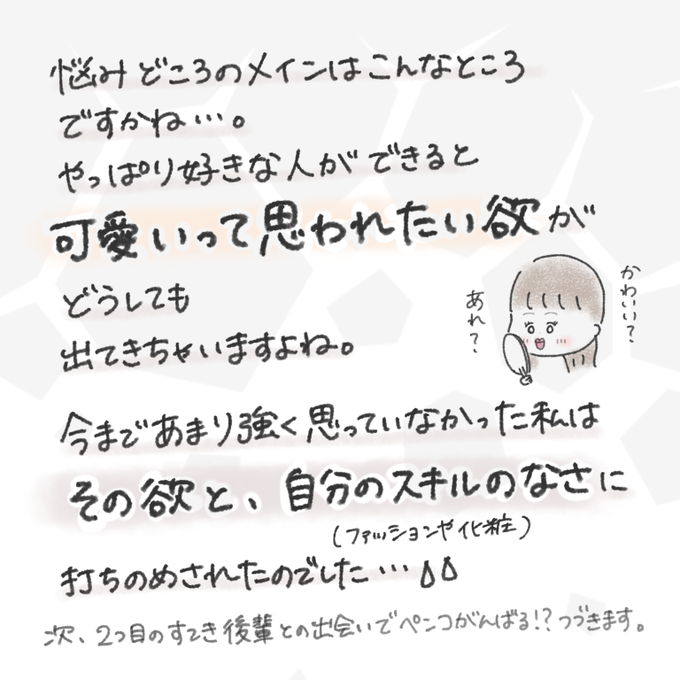 悩みどころのメインはこんなところ
ですかね…。
やっぱり好きな人ができると
可愛いって思われたい欲が
どうしても
出てきちゃいますよね。
かわいい?
あれ?
今まであまり強く思っていなかった私は
その欲と、自分のスキルのなさに
(ファッションや化粧)
打ちのめされたのでした…
次、2つ目のすてき後輩との出会いでペンコがんばる!?つづきます。